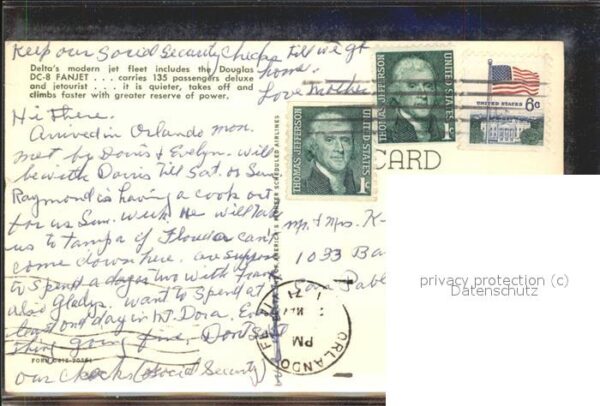 Keep our Social Security Checks till we get
home.
Love Mother
Delta's modern jet fleet includes the Douglas
DC-8 FANJET . . . carries 135 passengers deluxe
and jetourist . . . it is quieter, takes off and
climbs faster with greater reserve of power.
Hi There.
Arrived in Orlando Mon.
met by Doris & Evelyn. will
be with Doris till Sat. or Sun
Raymond is having a cook out
for us Sun. week. He will take
us to Tampa if can't
come down here. are
to spend a day or two with
also Gladys. want to spend at
least one day in Mt. Dora.
thing going fine. Don't
our checks (Social Security)
FORM
SCHEDULED AIRLINES
THOMAS JEFFERSON
UNITED STATES
1c
THOMAS JEFFERSON
UNITED STATES
1c
UNITED STATES
6c
CARD
Mr. & Mrs. K
1033 Ba
San Pabl
ORLANDO
PM
privacy protection (c)
Datenschutz